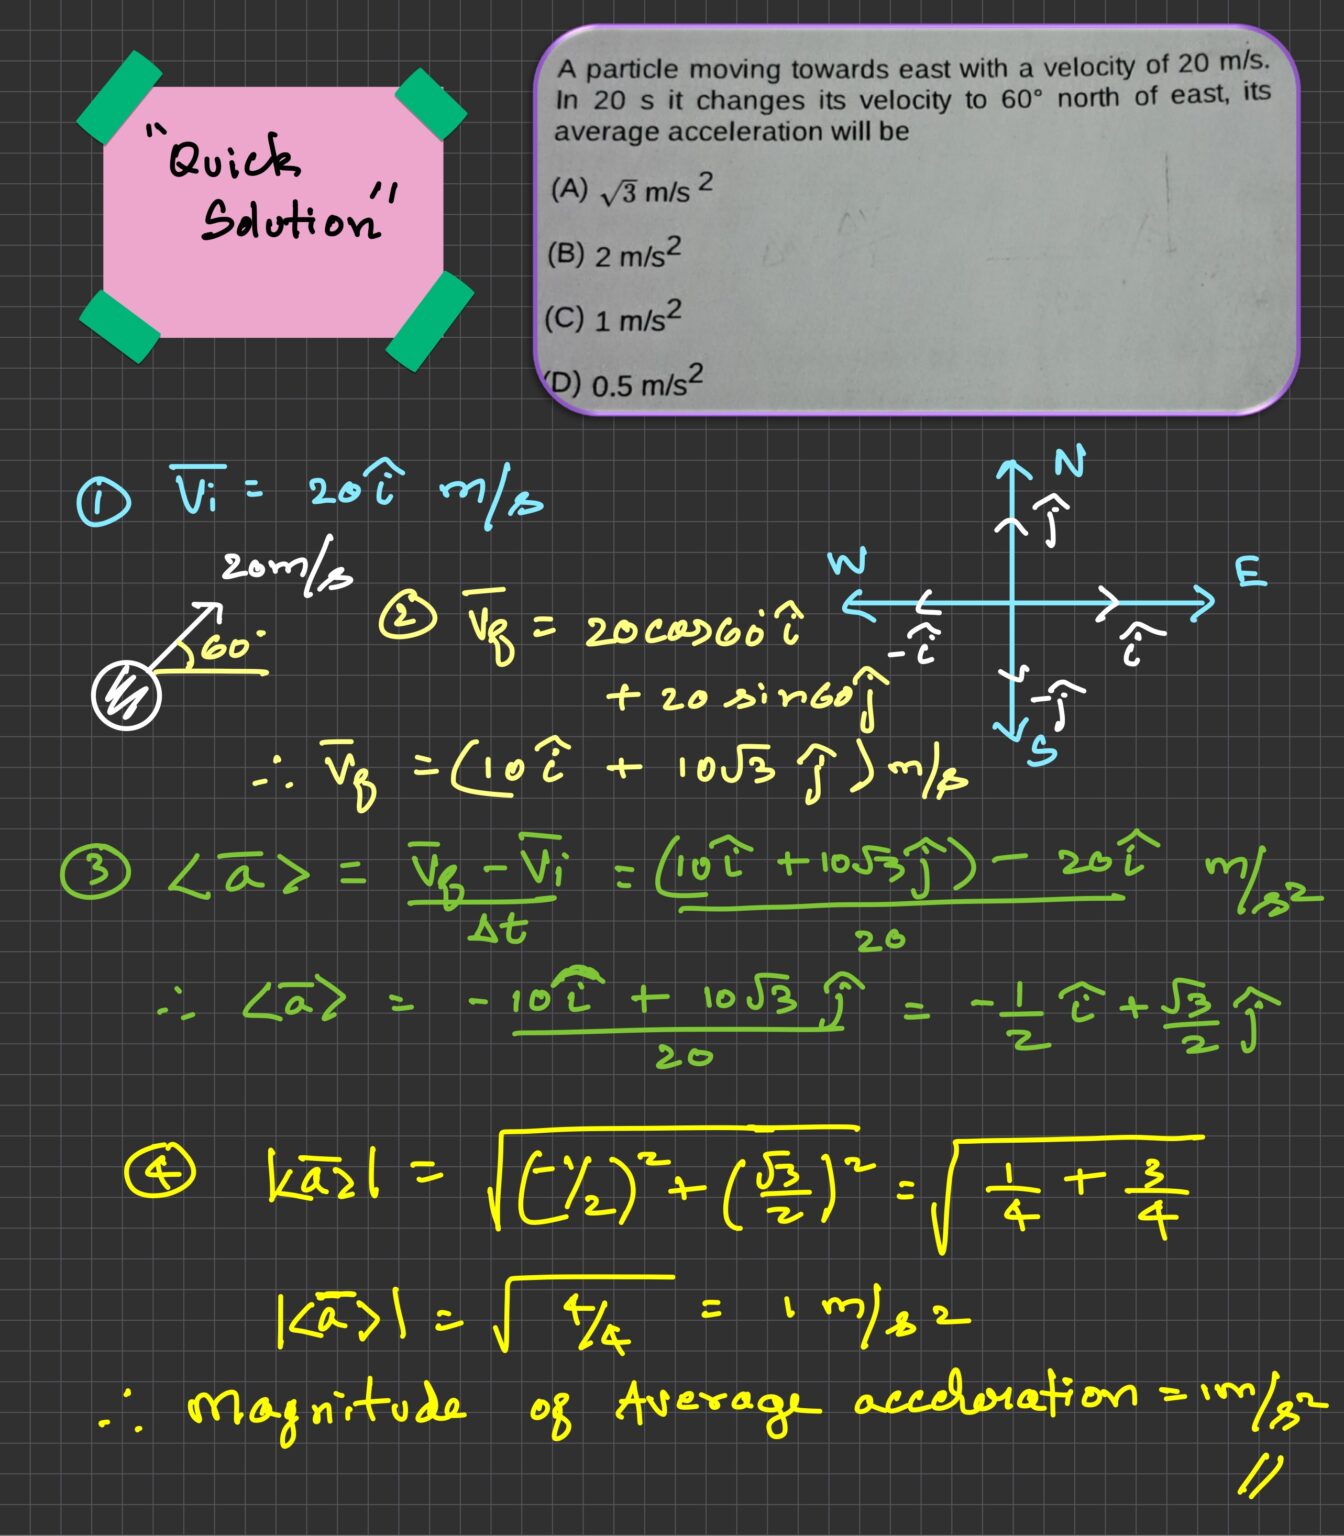 "Quick
Solution"
A particle moving towards east with a velocity of 20 m/s.
In 20 s it changes its velocity to 60° north of east, its
average acceleration will be
(A) √3 m/s 2
(B) 2 m/s2
(C) 1 m/s2
(D) 0.5 m/s2
① V̅i = 20î m/s
N
ĵ
W
E
-î
î
-ĵ
S
20m/s
60°
② V̅f = 20cos60°î
+ 20 sin60ĵ
∴ V̅f = (10î + 10√3 ĵ) m/s
③ <a̅> = (V̅f - V̅i)/Δt = ((10î + 10√3ĵ) - 20î)/20 m/s2
∴ <a̅> = (-10î + 10√3 ĵ)/20 = -1/2 î + √3/2 ĵ
④ |<a̅>| = √((-1/2)² + (√3/2)²) = √(1/4 + 3/4)
|<a̅>| = √(4/4) = 1 m/s2
∴ Magnitude of Average acceleration = 1m/s2